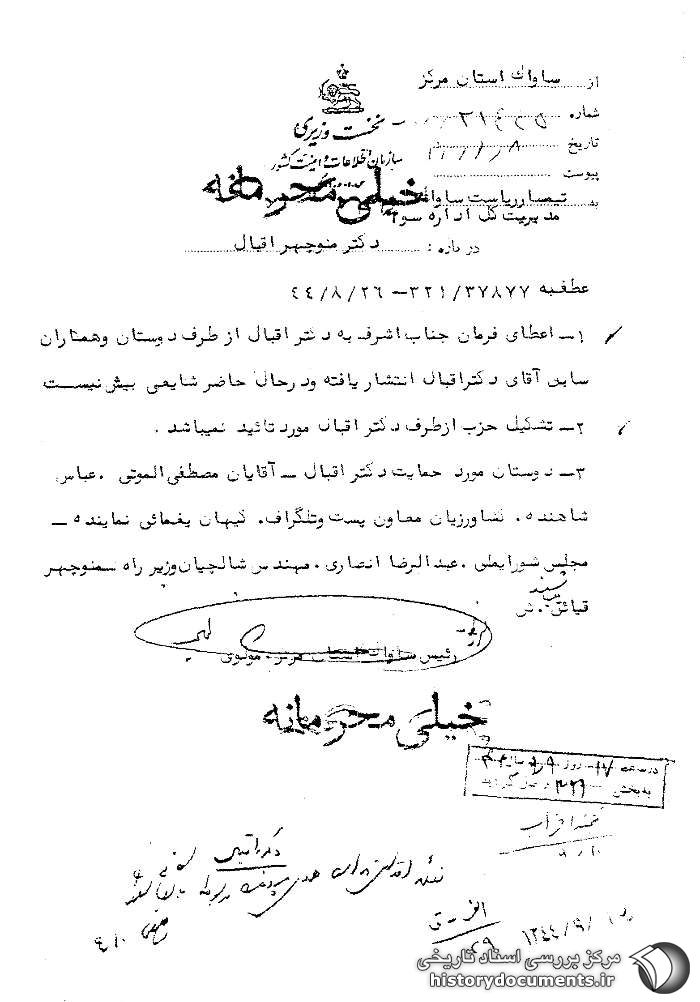 از ساواک استان مرکز
شماره
تاریخ
پیوست
نخست وزیری
سازمان اطلاعات و امنیت کشور
خیلی محرمانه
به تیمسار ریاست ساواک
مدیریت کل اداره سوم
درباره : دکتر منوچهر اقبال
عطف به ۳۲۱/۳۷۸۷۷ – ۴۴/۸/۲۶
۱– اعطای فرمان جناب اشرف به دکتر اقبال از طرف دوستان وهمکاران
سابق آقای دکتراقبال انتشار یافته ودرحال حاضر شایعی بیش نیست
۲– تشکیل حزب ازطرف دکتر اقبال مورد تائید نمیباشد .
۳– دوستان مورد حمایت دکتر اقبال – آقایان مصطفی الموتی . عباس
شاهنده . کشاورزیان معاون پست وتلگراف . کیهان یغمائی نماینده –
مجلس شورایملی . عبدالرضا انصاری . مهندس شالچیان وزیر راه – منوچهر
رئیس ساواک استان مرکز . مولوی
خیلی محرمانه
در ساعت ۱۷ روز
به بخش ۳۲۱
دکتر اقبال
۱۲۴۴/۹/
مرکز بررسی اسناد تاریخی
historydocuments.ir